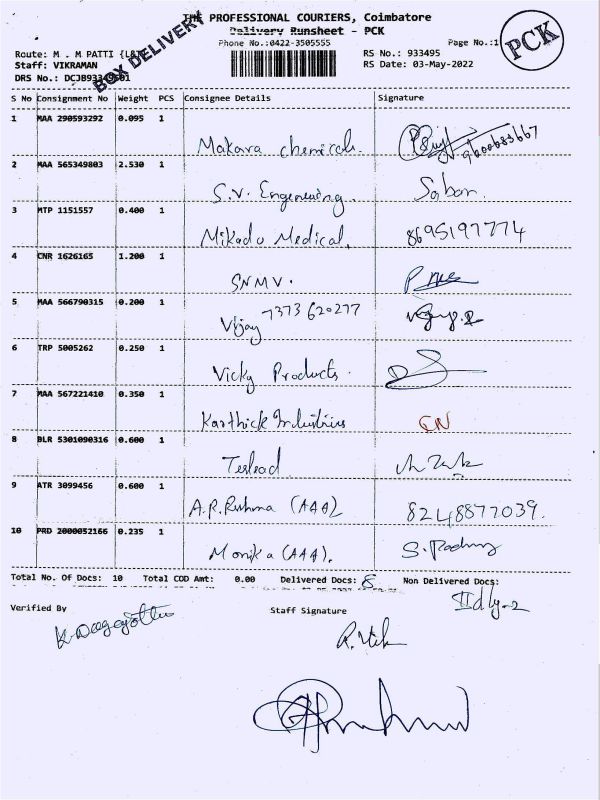 THE PROFESSIONAL COURIERS, Coimbatore
Delivery Runsheet - PCK
Phone No.:0422-3505555
Page No.:1
PCK
BOX DELIVERY
Route: M . M PATTI {L&T}
Staff: VIKRAMAN
DRS No.: DCJB933
RS No.: 933495
RS Date: 03-May-2022
S No Consignment No Weight PCS Consignee Details Signature
1 MAA 290593292 0.095 1
Makara chemicals. 9600683667
2 MAA 565349803 2.530 1
S.V. Engeneering. Sabari
3 MTP 1151557 0.400 1
Mikado Medical. 8695197774
4 CNR 1626165 1.200 1
SNMV.
5 MAA 566790315 0.200 1
Vijay 7373620277
6 TRP 5005262 0.250 1
Vicky Products.
7 MAA 567221410 0.350 1
Karthick Industries CN
8 BLR 5301090316 0.600 1
Teslead
9 ATR 3099456 0.600 1
A.R. (AAA) 8248877039.
10 PRD 2000052166 0.235 1
Monika (AAA).
Total No. Of Docs: 10 Total COD Amt: 0.00 Delivered Docs: 8 Non Delivered Docs:
II dly-2
Verified By Staff Signature